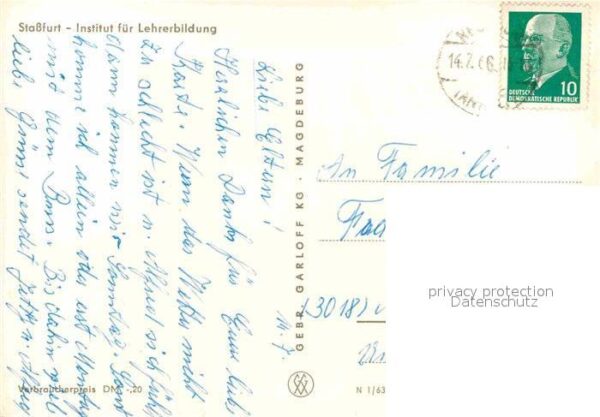 Staßfurt – Institut für Lehrerbildung
14.7.66
DEUTSCHE
DEMOKRATISCHE REPUBLIK
10
14.7.
Liebe Eltern!
Herzlichen Dank für Eure liebe
Karte. Wenn das Wetter nicht
zu schlecht ist u. Alfred sich fühlt
dann kommen wir Sonntag. Sonst
komme ich allein oder erst Montag
mit dem Bus. Bis dahin viele
liebe Grüße sendet
GEBR. GARLOFF KG · MAGDEBURG
An Familie
(3018)
privacy protection
Datenschutz
Verbraucherpreis DM -,20
N 1/63